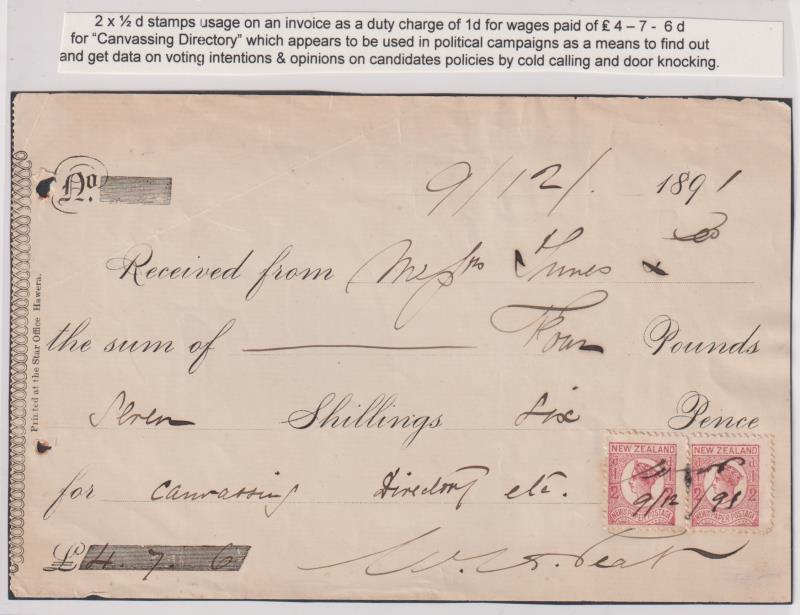 2 x ½ d stamps usage on an invoice as a duty charge of 1d for wages paid of ₤ 4 – 7 - 6 d
for “Canvassing Directory” which appears to be used in political campaigns as a means to find out
and get data on voting intentions & opinions on candidates policies by cold calling and door knocking.
No.
9/12/. 1891
Received from Messrs
the sum of Four Pounds
Seven Shillings Six Pence
for canvassing Directory etc.
£ 4. 7. 6
Printed at the Star Office Hawera.
NEW ZEALAND NEW ZEALAND
½ d d ½
9/12 /91
NEWSPAPER POSTAGE NEWSPAPER POSTAGE